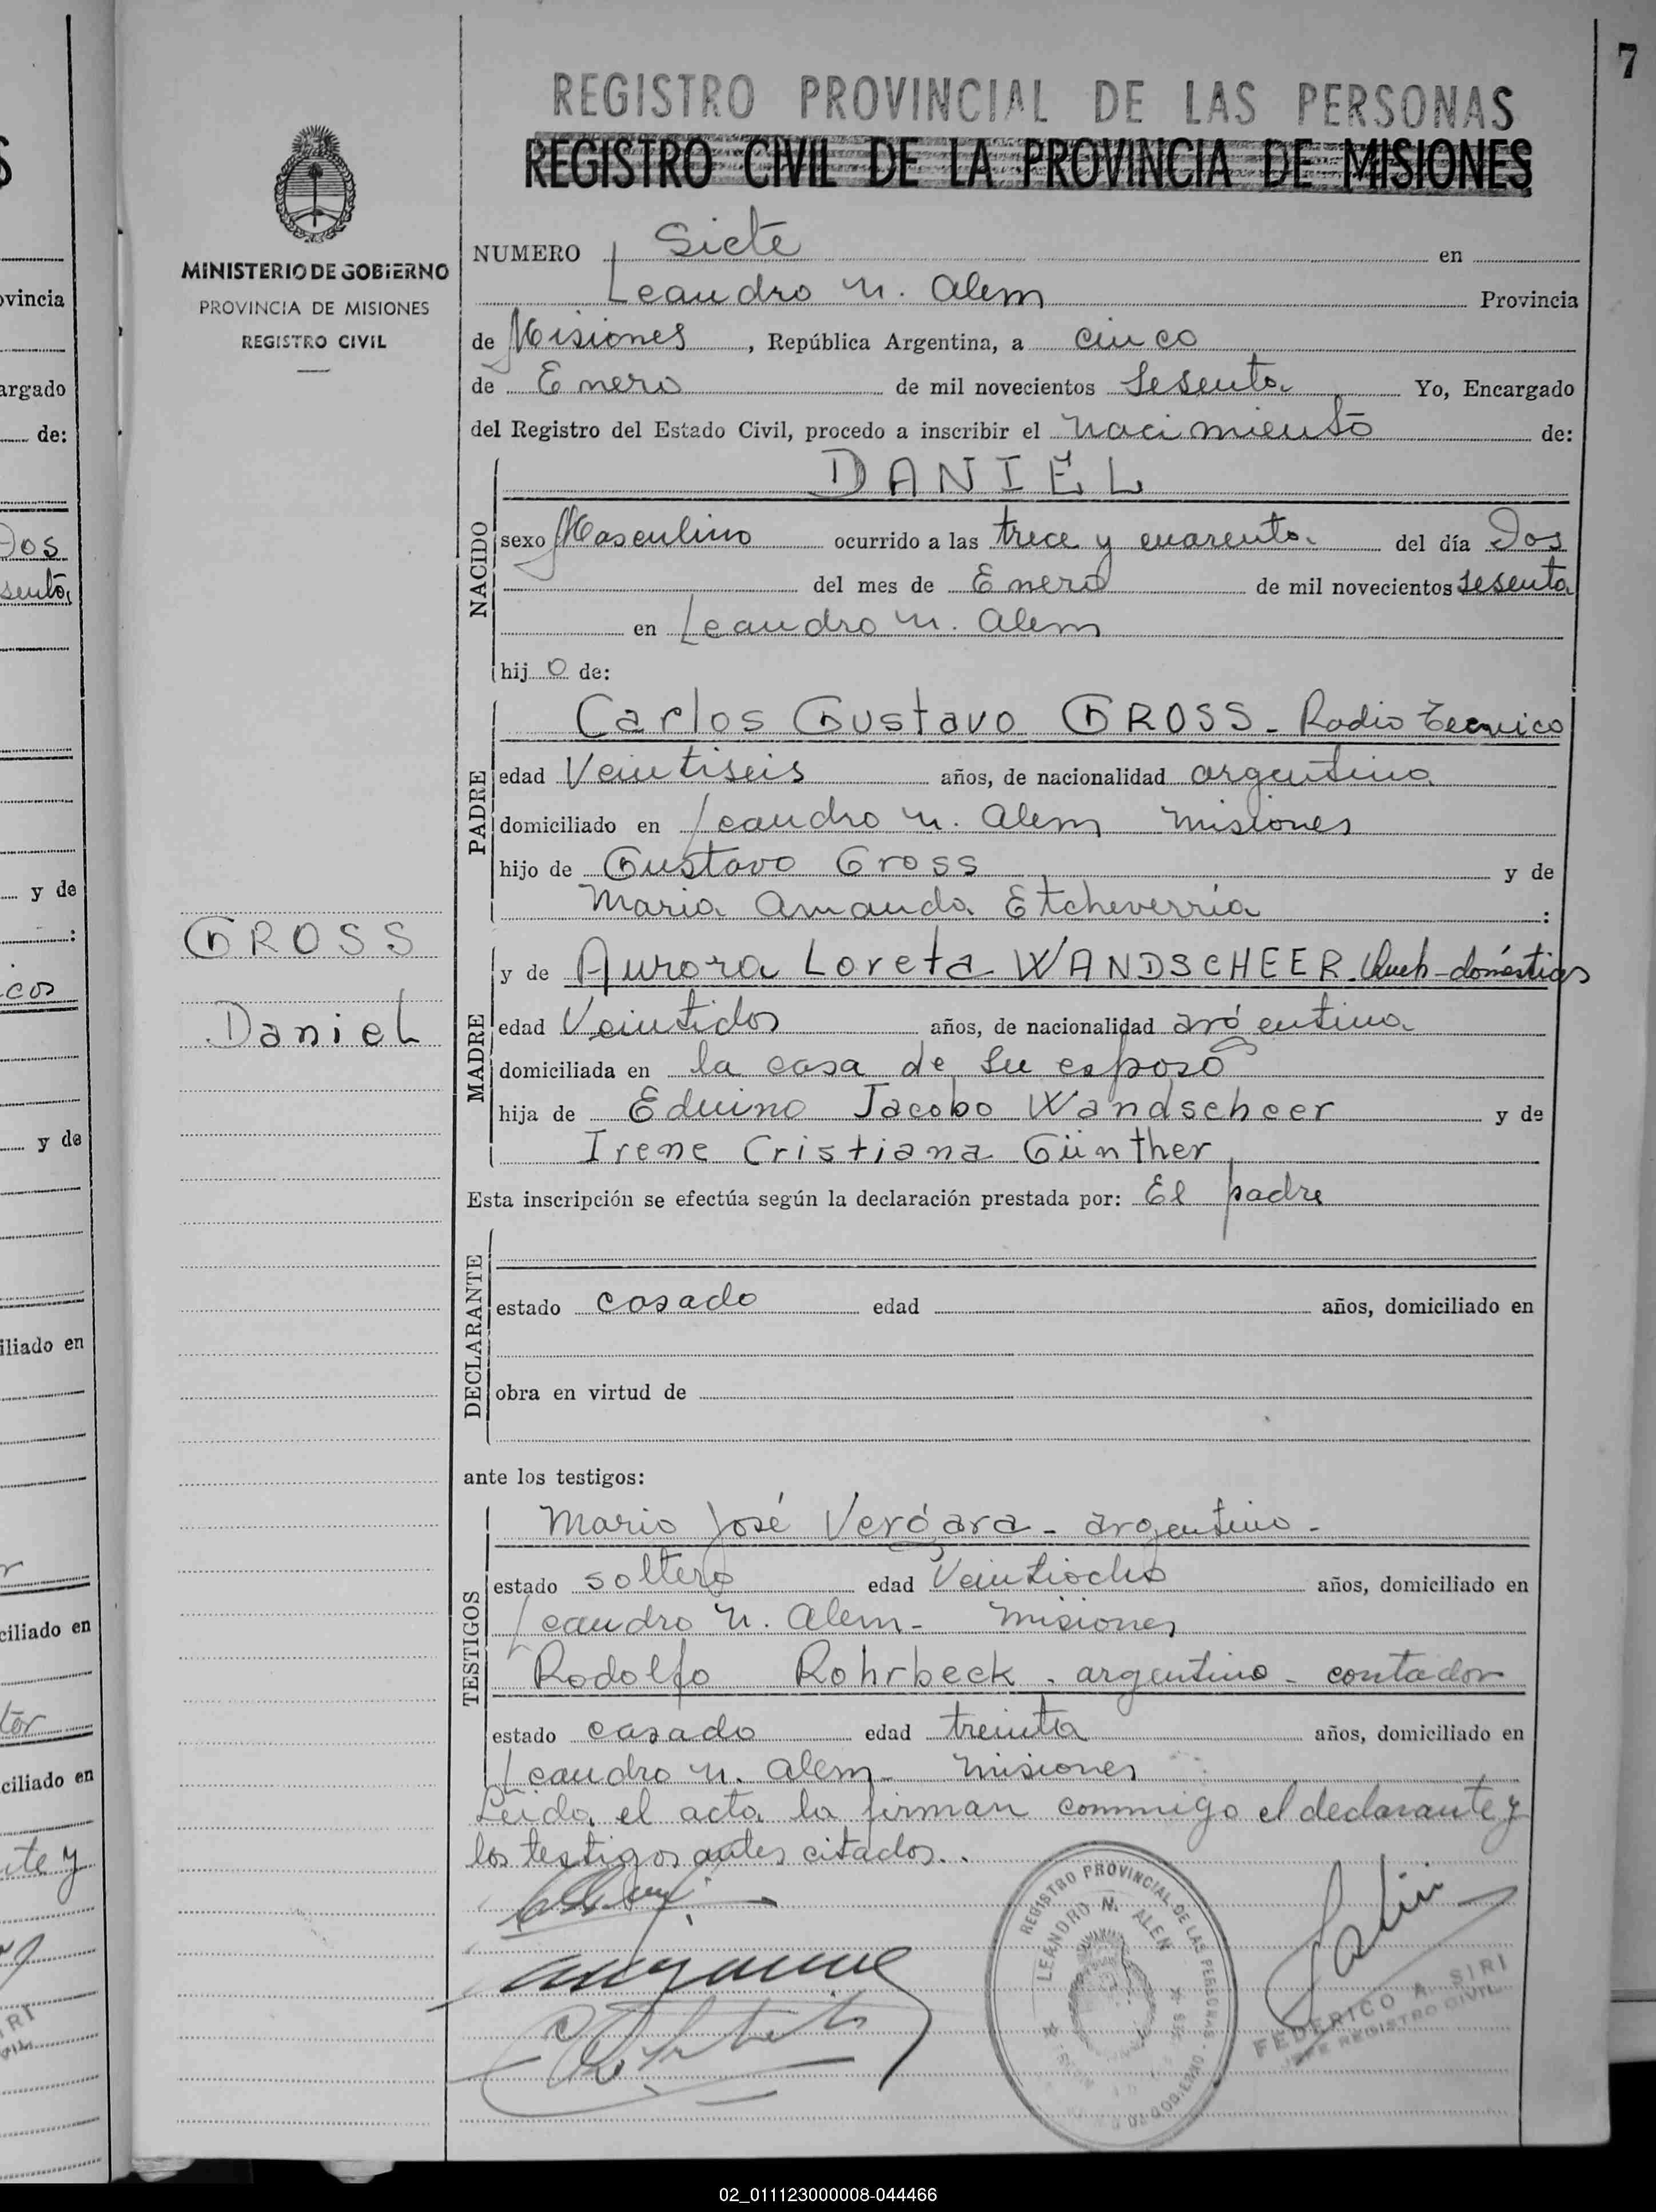 7
REGISTRO PROVINCIAL DE LAS PERSONAS
REGISTRO CIVIL DE LA PROVINCIA DE MISIONES
MINISTERIO DE GOBIERNO
PROVINCIA DE MISIONES
REGISTRO CIVIL
GROSS
Daniel
NUMERO Siete en
Leandro N. Alem Provincia
de Misiones, República Argentina, a cinco
de Enero de mil novecientos Sesenta Yo, Encargado
del Registro del Estado Civil, procedo a inscribir el nacimiento de:
NACIDO
DANIEL
sexo Masculino ocurrido a las trece y cuarenta del día Dos
del mes de Enero de mil novecientos Sesenta
en Leandro N. Alem
hijo de:
PADRE
Carlos Gustavo GROSS - Radio tecnico
edad Veintiseis años, de nacionalidad argentina
domiciliado en Leandro N. Alem Misiones
hijo de Gustavo Gross y de
Maria Amanda Etcheverria :
MADRE
y de Aurora Loreta WANDSCHEER. domésticos
edad Veintidos años, de nacionalidad argentina
domiciliada en la casa de su esposo
hija de Eduino Jacobo Wandscheer y de
Irene Cristiana Günther
Esta inscripción se efectúa según la declaración prestada por: El padre
DECLARANTE
estado casado edad años, domiciliado en
obra en virtud de
ante los testigos:
TESTIGOS
Mario José Vergara - argentino -
estado soltero edad Veintiocho años, domiciliado en
Leandro N. Alem - Misiones
Rodolfo Rohrbeck - argentino - contador
estado casado edad treinta años, domiciliado en
Leandro N. Alem - Misiones
Leida el acta la firman conmigo el declarante y
los testigos antes citados..
REGISTRO PROVINCIAL DE LAS PERSONAS
LEANDRO N. ALEN
FEDERICO A. SIRI
JEFE REGISTRO CIVIL
ovincia
argado
de:
Dos
y de
:
y de
iliado en
ciliado en
ciliado en
02_011123000008-044466